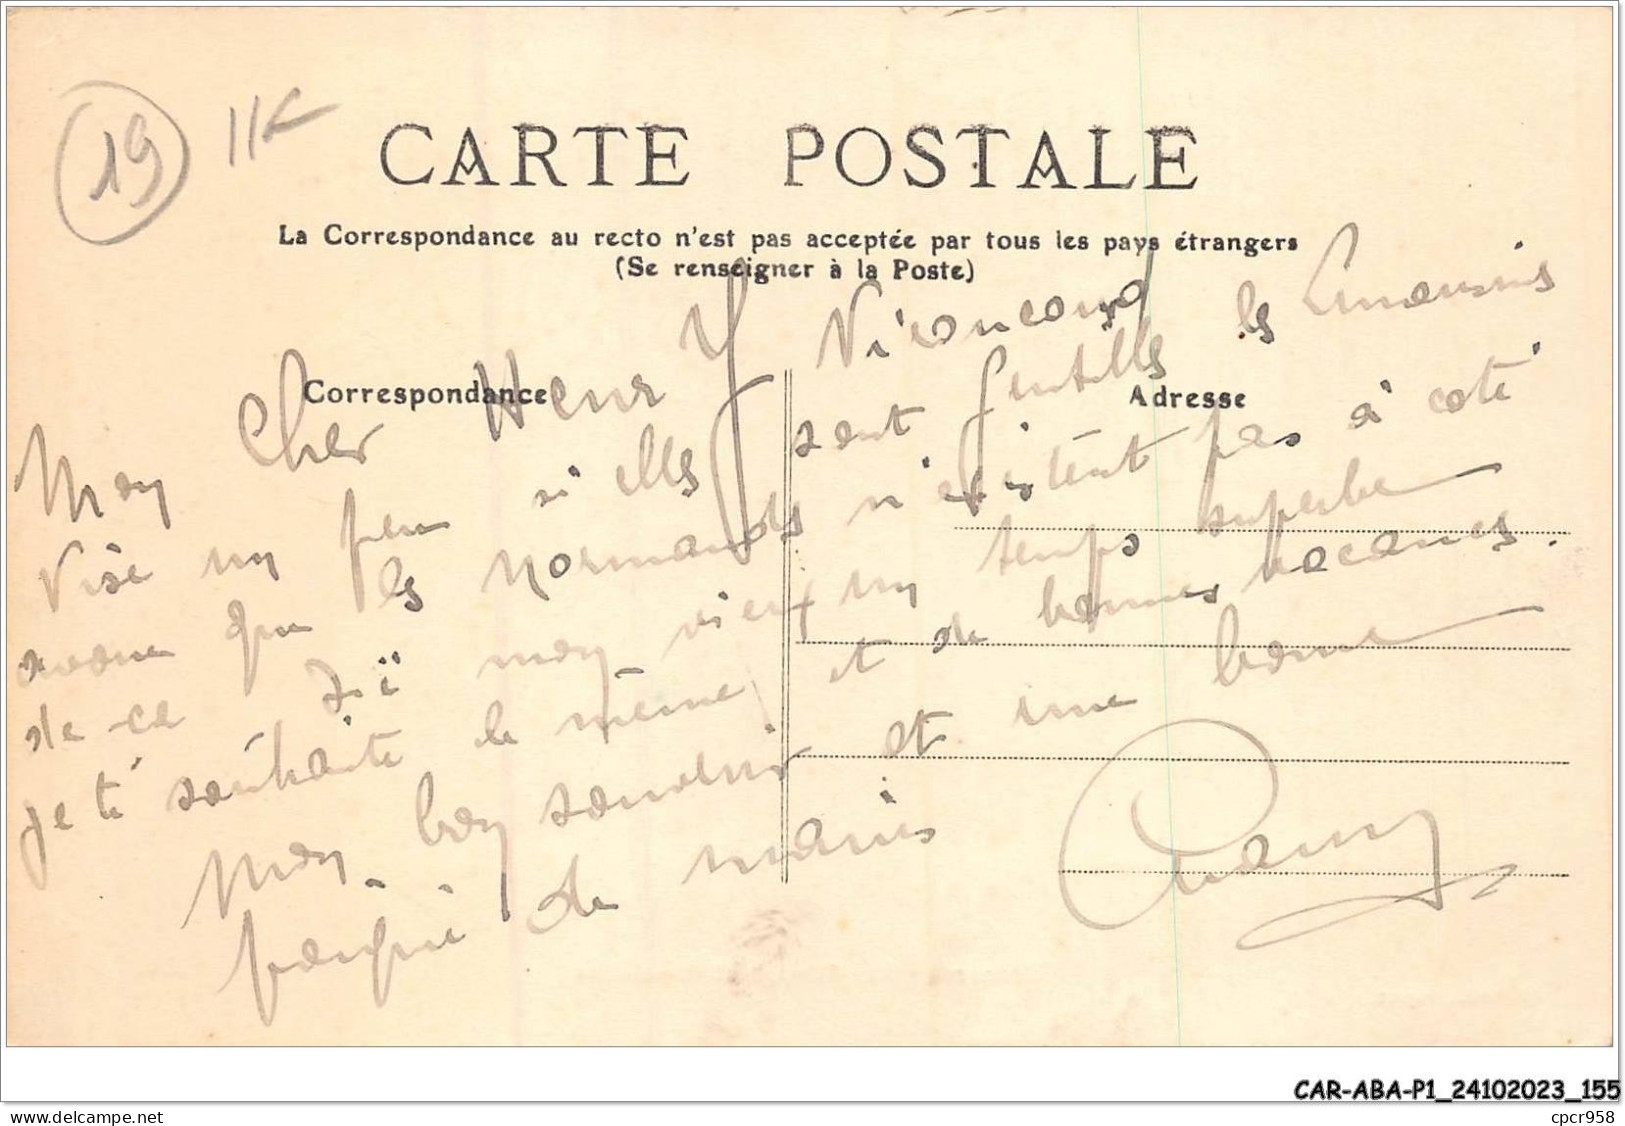 19 11€
CARTE POSTALE
La Correspondance au recto n'est pas acceptée par tous les pays étrangers
(Se renseigner à la Poste)
Correspondance
Adresse
Mon Cher Henry
Vise un peu si elles sont gentilles les Limousines
avoue que les normands n'existent pas à coté
de ça J'ai mon vieux un temps superbe
je te souhaite le même et de bonnes vacances.
Mon bon souvenir et une bonne
poignée de mains
CAR-ABA-P1_24102023_155
www.delcampe.net
cpcr958